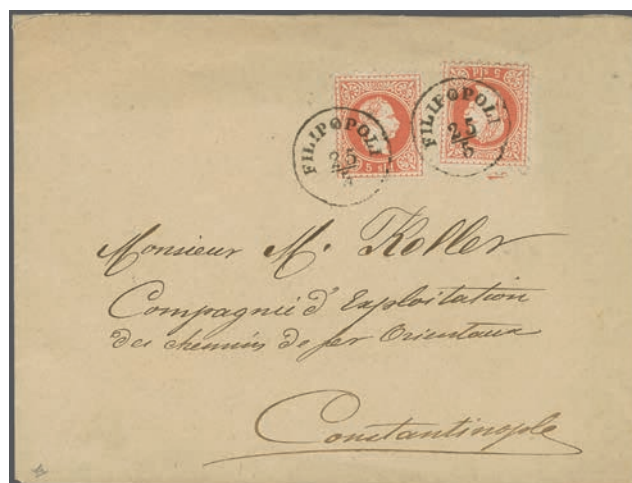 5 sld
5 sld
FILIPOPOLI
25
5
FILIPOPOLI
25
5
Monsieur M. Koller
Compagnie d'Exploitation
des chemins de fer Orientaux
Constantinople